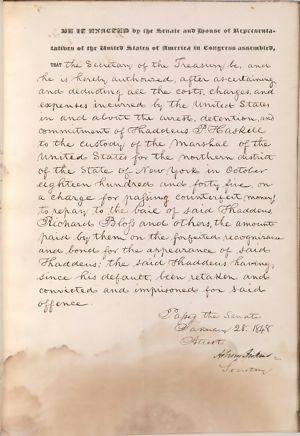 BE IT ENACTED by the Senate and House of Representa-
tatives of the United States of America in Congress assembled,
THAT the Secretary of the Treasury be, and
he is hereby authoured, after ascertaining
and deducting all the costs, charges, and
expenses incurred by the United States
in and about the arrest, detention, and
commitment of Thaddeus P. Haskell
to the custody of the Marshal of the
United States for the northern district
of the State of New York in October
eighteen hundred and forty five, on
a charge for passing counterfeit money,
to repay to the bail of said Thaddeus,
Richard Bloss and others, the amount
paid by them on the forfeited recognizance
and bond for the appearance of said
Thaddeus; the said Thaddeus having,
since his default, been retaken and
convicted and imprisoned for said
offence.
Passed the Senate
January 28. 1848
Attest
Asbury Dickins
Secretary